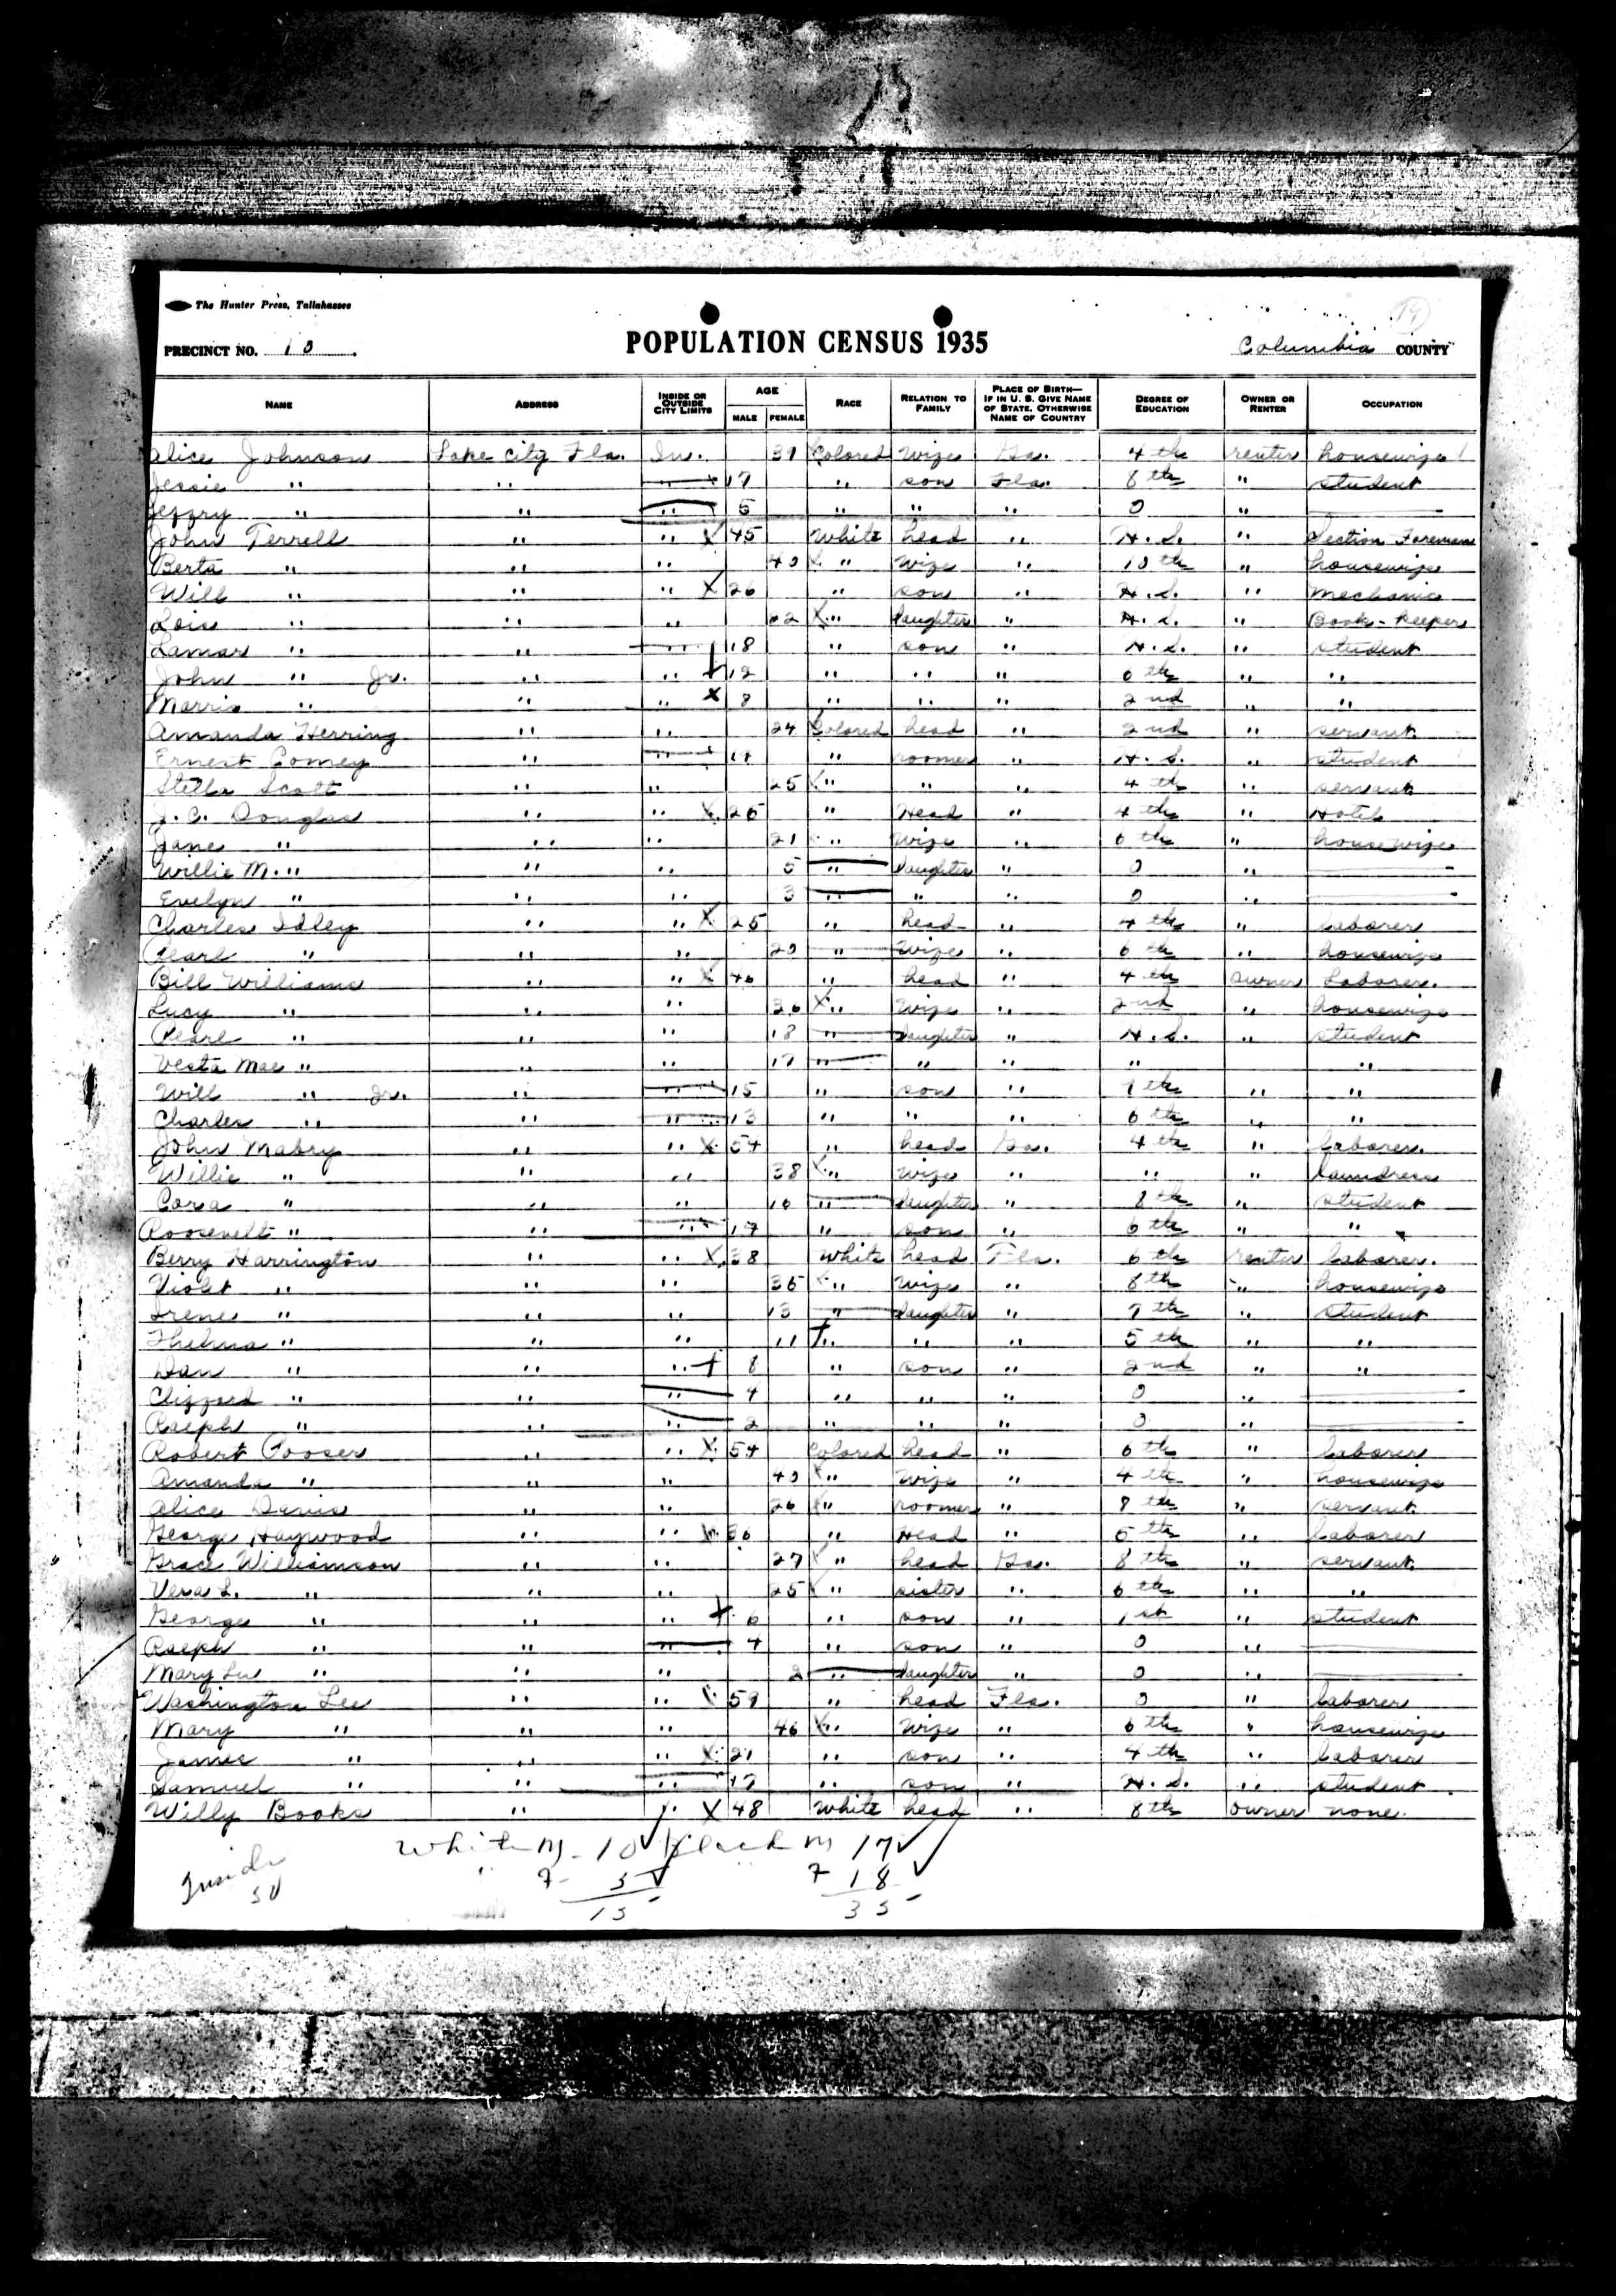 The Hunter Press, Tallahassee
PRECINCT NO. 10. POPULATION CENSUS 1935 Columbia COUNTY
NAME ADDRESS INSIDE OR OUTSIDE CITY LIMITS AGE MALE FEMALE RACE RELATION TO FAMILY PLACE OF BIRTH— IF IN U. S. GIVE NAME OF STATE, OTHERWISE NAME OF COUNTRY DEGREE OF EDUCATION OWNER OR RENTER OCCUPATION
Alice Johnson Lake City Fla. In. Colored wife Ga. 4th renter housewife
Jessie " " " 17 " son Fla. 8th " student
Jeffry " " " 5 " " " 0 "
John Terrell " " X 45 White head " H. S. " Section Foreman
Berta " " " 40 " wife " 10th " housewife
Will " " " X 26 " son " H. S. " mechanic
Lois " " " 22 X " daughter " H. S. " Book-keeper
Lamar " " " 18 " son " H. S. " student
John " Jr. " " 12 " " " 6th " "
Morris " " " X 8 " " " 2nd " "
Amanda Herring " " 24 Colored head " 2nd " servant
Ernest " " " roomer " H. S. " student
Stella Scott " " 25 X " " " 4th " servant
J. C. Douglas " " X 26 " Head " 4th " Hotel
Jane " " " 21 " wife " 6th " housewife
Willie M. " " " 5 " daughter " 0 "
Evelyn " " " 3 " " " 0 "
Charles Idley " " X 25 " head " 4th " laborer
Pearl " " " 20 " wife " 6th " housewife
Bill Williams " " X 46 " head " 4th owner Laborer.
Lucy " " " 36 X " wife " 2nd " housewife
Pearl " " " 18 " daughter " H. S. " student
Vesta Mae " " " 17 " " " " "
Will " Jr. " " 15 " son " 7th " "
Charles " " " 13 " " " 6th " "
John Mabry " " X 54 " head Ga. 4th " laborer.
Willie " " " 38 X " wife " " " laundress
Cora " " " 16 " daughter " 8th " student
Roosevelt " " " 17 " son " 6th " "
Berry Harrington " " X 38 White head Fla. 6th renter laborer.
Violet " " " 35 " wife " 8th " housewife
Irene " " " 13 " daughter " 7th " student
Thelma " " " 11 " " " 5th " "
Dan " " " 8 " son " 2nd " "
Clifford " " " 4 " " " 0 "
Ralph " " " 2 " " " 0 "
Robert Pooser " " X 54 Colored head " 6th " laborer
Amanda " " " 40 X " wife " 4th " housewife
Alice Davis " " 26 " roomer " 8th " servant
George Haywood " " X 36 " Head " 5th " laborer
Grace Williamson " " 27 X " head Ga. 8th " servant
Vera L. " " " 25 " sister " 6th " "
George " " " 6 " son " 1st " student
Ralph " " " 4 " son " 0 "
Mary Lu " " " 2 " daughter " 0 "
Washington Lee " " X 59 " head Fla. 0 " laborer
Mary " " " 46 X " wife " 6th " housewife
James " " " X 21 " son " 4th " laborer
Samuel " " " 17 " son " H. S. " student
Willy Books " " X 48 White head " 8th owner none.
White M - 10 Black M 17
Inside 50 " F - 5 " F 18
15 35